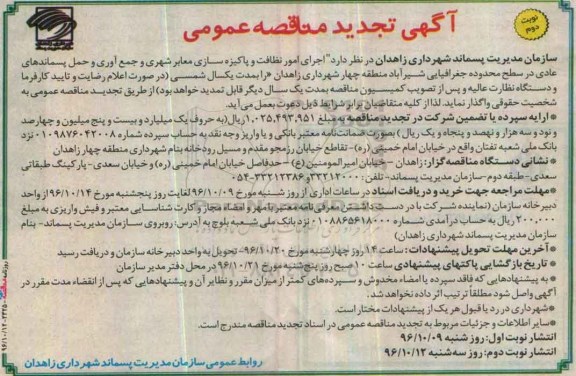 آگهی تجدید مناقصه عمومی
نوبت دوم
سازمان مدیریت پسماند شهرداری زاهدان در نظر دارد "اجرای امور نظافت و پاکیزه سازی معابر شهری و جمع آوری و حمل پسماندهای
عادی در سطح محدوده جغرافیایی شیرآباد منطقه چهار شهرداری زاهدان "را بمدت یکسال شمسی (در صورت اعلام رضایت و تایید کارفرما
و دستگاه نظارت عالیه و پس از تصویب کمیسیون مناقصه بمدت یک سال دیگر قابل تمدید خواهد بود) از طریق تجدید مناقصه عمومی به
شخصیت حقوقی واگذار نماید. لذا از کلیه متقاضیان برابر شرایط ذیل دعوت بعمل می آید.
ارایه سپرده یا تضمین شرکت در تجدید مناقصه به مبلغ ۱،۰۲۵،۴۹۳،۹۵۱ ریال(به حروف یک میلیارد و بیست و پنج میلیون و چهارصد
و نود و سه هزار و نهصد و پنجاه و یک ریال ) بصورت ضمانت نامه معتبر بانکی و یا واریز وجه نقد به حساب سپرده شماره ۰۱۰۹۸۷۶۰۴۲۰۰۸ نزد
بانک ملی شعبه تفتان واقع در خیابان امام خمینی (ره)- تقاطع خیابان رزمجو مقدم و مسیل رودخانه بنام شهرداری منطقه چهار زاهدان
نشانی دستگاه مناقصه گزار: زاهدان – خیابان امیرالمومنین (ع) – حدفاصل خیابان امام خمینی (ره) و خیابان سعدی- پارکینگ طبقاتی
سعدی-طبقه دوم-سازمان مدیریت پسماند- تلفن: ۳۳۲۱۳۰۰۰-۳۳۲۱۲۳۸۶-۰۵۴
مهلت مراجعه جهت خرید و دریافت اسناد در ساعات اداری از روز شنبه مورخ ۹۶/۱۰/۰۹ لغایت روز پنجشنبه مورخ ۹۶/۱۰/۱۴ از واحد
دبیرخانه سازمان (نماینده شرکت با در دست داشتن معرفی نامه معتبر با مهر و امضاء مجاز و کارت شناسایی معتبر و فیش واریزی به مبلغ
۲۰۰،۰۰۰ ریال به حساب درآمدی شماره ۰۱۰۸۸۶۵۶۱۸۰۰۰ نزد بانک ملی شعبه بلوچ به آدرس: روبروی سازمان مدیریت پسماند- بنام
سازمان مدیریت پسماند شهرداری زاهدان)
آخرین مهلت تحویل پیشنهادات: ساعت ۱۴ روز چهارشنبه مورخ ۹۶/۱۰/۲۰- تحویل به واحد دبیرخانه سازمان و دریافت رسید
تاریخ بازگشایی پاکتهای پیشنهادی ساعت ۱۰ صبح روز پنج شنبه مورخ ۹۶/۱۰/۲۱ در محل دفتر مدیر سازمان
به پیشنهادهایی که فاقد سپرده یا امضاء مخدوش و سپرده‌های کمتر از میزان مقرر و نظایر آن و پیشنهادهایی که پس از انقضاء مدت مقرر در
آگهی واصل شود مطلقاً ترتیب اثر داده نخواهد شد.
شهرداری در رد یا قبول هر یک از پیشنهادات مختار است.
سایر اطلاعات و جزئیات مربوط به تجدید مناقصه عمومی در اسناد تجدید مناقصه مندرج است.
انتشار نوبت اول: روز شنبه ۹۶/۱۰/۰۹
انتشار نوبت دوم: روز سه شنبه ۹۶/۱۰/۱۲
روابط عمومی سازمان مدیریت پسماند شهرداری زاهدان